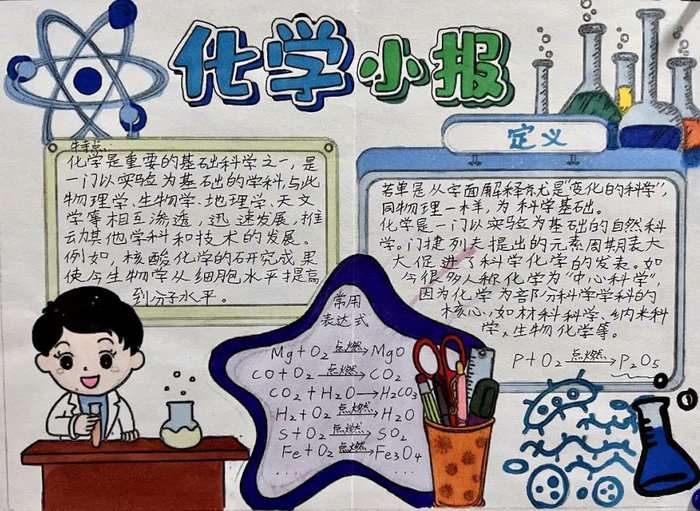 化学小报
特点:
化学是重要的基础科学之一,是
一门以实验为基础的学科,与此
物理学、生物学、地理学、天文
学等相互渗透,迅速发展,推
动其他学科和技术的发展。
例如,核酸化学的研究成果
使今生物学从细胞水平提高
到分子水平。
定义
若单是从字面解释就是"变化的科学",
同物理一样,为科学基础。
化学是一门以实验为基础的自然科
学。门捷列夫提出的元素周期表大
大促进了科学化学的发表。如
今很多人称化学为"中心科学",
因为化学为各部分科学学科的
核心,如材料科学、纳米科
学、生物化学等。
P+O₂ 点燃 P₂O₅
常用
表达式
Mg+O₂ 点燃 MgO
CO+O₂ 点燃 CO₂
CO₂+H₂O→H₂CO₃
H₂+O₂ 点燃 H₂O
S+O₂ 点燃 SO₂
Fe+O₂ 点燃 Fe₃O₄